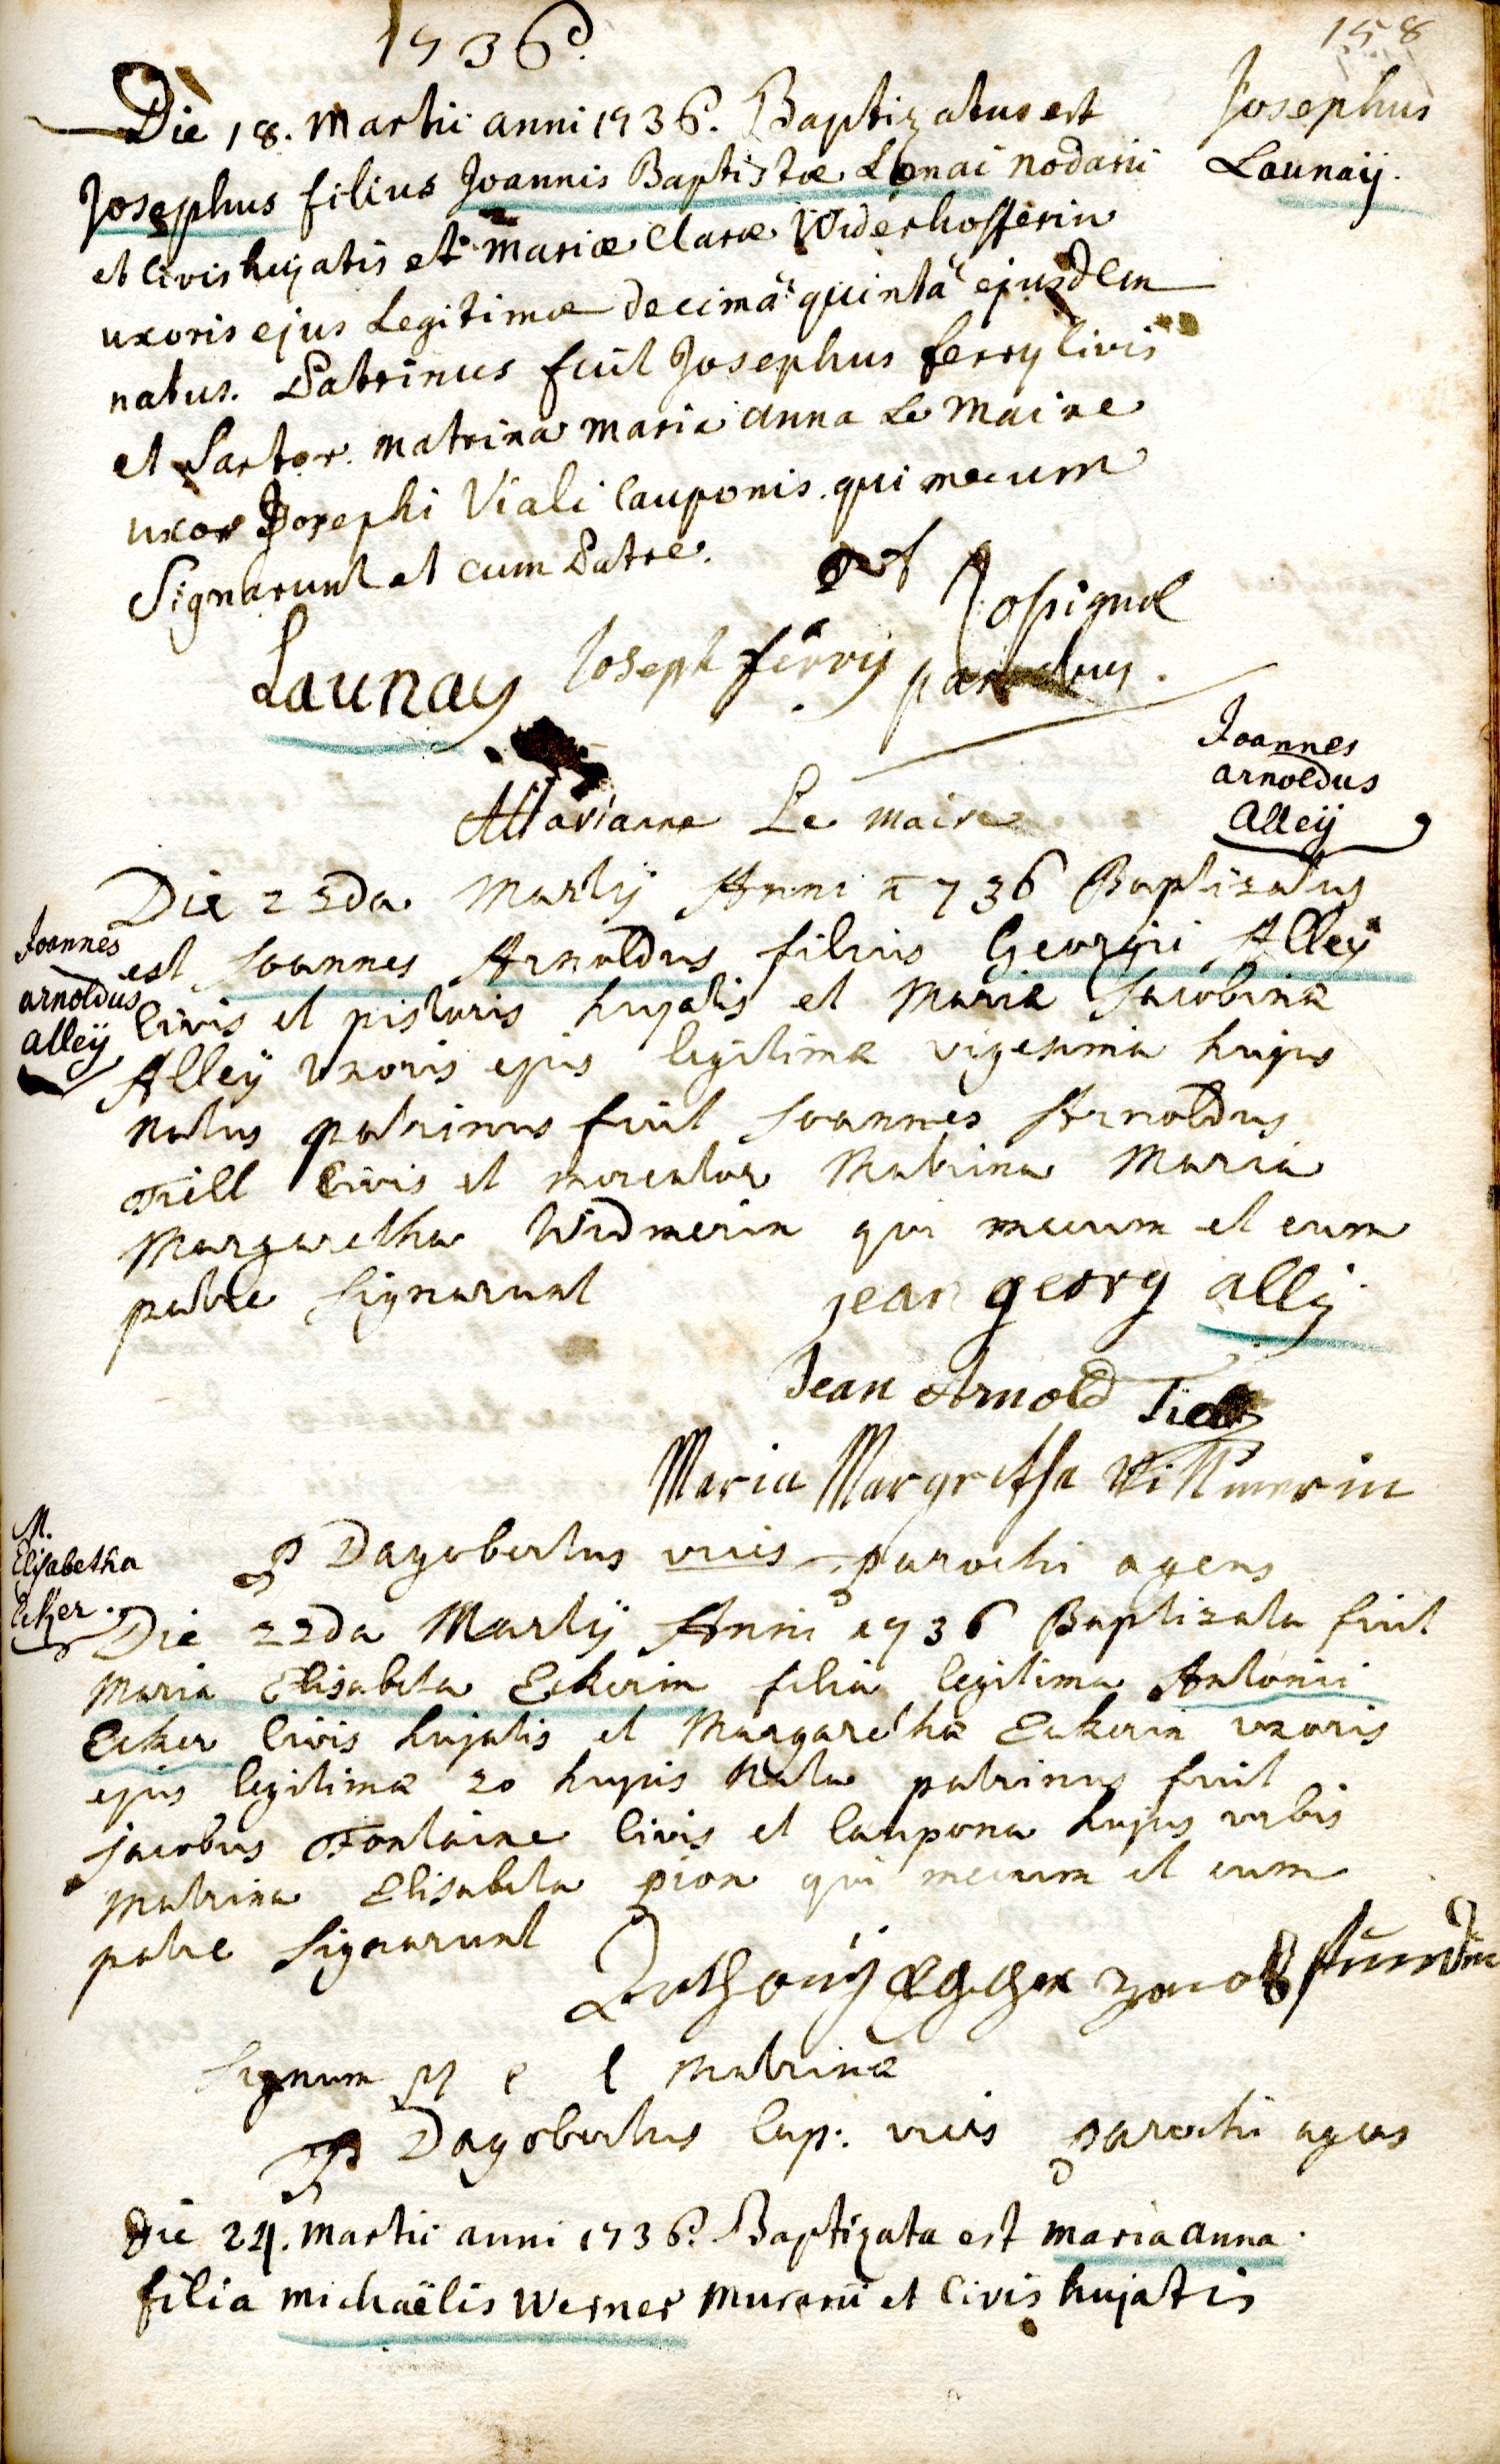 1736
158
Die 18. Martii anni 1736. Baptizatus est
Josephus filius Joannis Baptistæ Lonai nodarii
et civis hujatis et Mariæ Claræ Widerhofferin
uxoris ejus Legitimæ decimâ quintâ ejusdem
natus. Patrinus fuit Josephus ferry civis
et Sartor. matrina maria anna Le Maire
uxor Josephi Viali Cauponis. qui mecum
Signarunt et cum Patre.
Josephus
Launaij.
Launay Joseph ferrij
parochus.
Marianne Le maire
Joannes
arnoldus
alleij
Joannes
arnoldus
alleij
Die 22da Martij Anni 1736 Baptizatus
est Joannes Arnoldus filius Georgii Alleÿ
Civis et pistoris hujatis et Mariæ Jacobinæ
Alleÿ Uxoris ejus legitimæ vigesima hujus
natus patrinus fuit Joannes Arnoldus
Tiell Civis et mercator Matrina Maria
Margaretha Widmerin qui mecum et cum
patre Signarunt
jean georg allij
Jean Arnold
Maria Margretha Wittmerin
P Dagobertus vices parochi agens
M.
Elisabetha
Ecker.
Die 22da Martij Anni 1736 Baptizata fuit
Maria Elisabeta Eckerin filia legitima Antonii
Ecker Civis hujatis et Margarethæ Eckerin uxoris
ejus legitimæ 20 hujus Nata patrinus fuit
jacobus Fontaine Civis et Caupona hujus urbis
Matrina Elisabeta pion qui mecum et cum
patre Signarunt
Anthonij Egger
Signum M e l Matrinæ
P Dagobertus Cap: vices parochi agens
Die 24. Martii anni 1736. Baptizata est maria anna
filia michaëlis Werner Murarii et Civis hujatis